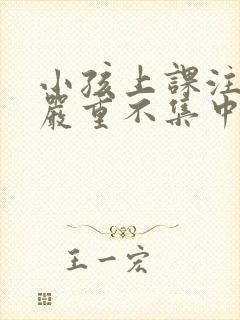 小孩上課注
嚴重不集中
王一宏